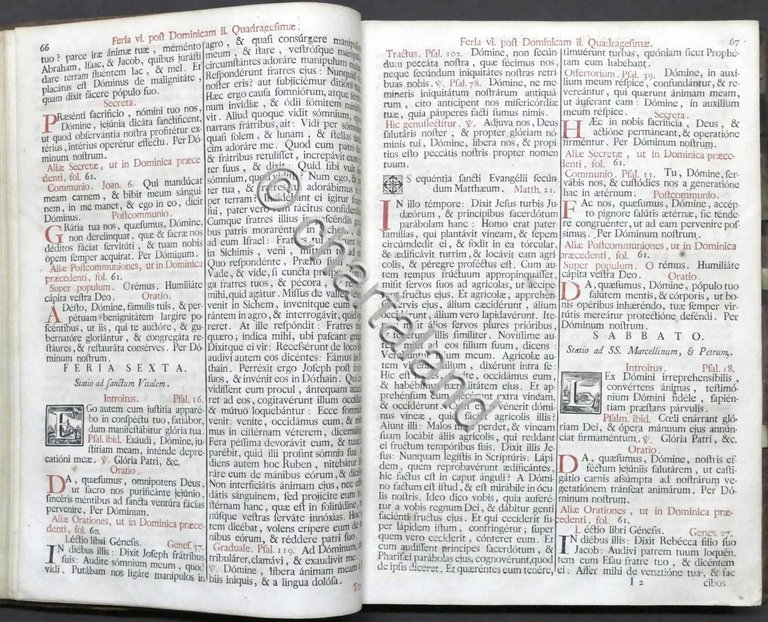 66
Feria vi. post Dominicam ii. Quadragesimæ.
tuo? parce iræ ánimæ tuæ, meménto
Abraham, Isaac, & Jacob, quibus jurásti
dare terram fluéntem lac, & mel. Et
placátus est Dóminus de malignitáte,
quam dixit fácere pópulo suo.
Secreta.
PRæsénti sacrifício, nómini tuo nos,
Dómine, jejúnia dicáta sanctíficent,
ut quod observántia nostra profitétur ex-
térius, intérius operétur efféctu. Per Dó-
minum nostrum.
Aliæ Secretæ, ut in Dominica præce-
denti, fol. 61.
Communio. Joan. 6. Qui mandúcat
meam carnem, & bibit meum sángui-
nem, in me manet, & ego in eo, dicit
Dóminus.
Postcommunio.
GRátia tua nos, quæsumus, Dómine,
non derelínquat, quæ & sacræ nos
déditos fáciat servitúti, & tuam nobis
opem semper acquírat. Per Dóminum.
Aliæ Postcommuniones, ut in Dominica
præcedenti, fol. 61.
Super populum. Orémus. Humiliáte
cápita vestra Deo. Oratio.
ADésto, Dómine, fámulis tuis, & per-
pétuam benignitátem largíre po-
scéntibus, ut iis, qui te auctóre, &
gubernatóre gloriántur, & congregáta re-
stáures, & restauráta consérves. Per Dó-
minum nostrum.
FERIA SEXTA.
Statio ad sanctum Vitalem.
Introitus. Psal. 16.
EGo autem cum justítia apparé-
bo in conspéctu tuo, satiábor,
dum manifestábitur glória tua.
Psal. ibid. Exáudi, Dómine, ju-
stítiam meam, inténde depre-
catióni meæ. ℣. Glória Patri, &c.
Oratio.
DA, quæsumus, omnípotens Deus,
ut sacro nos purificánte jejúnio,
sincéris méntibus ad sancta ventúra fácias
perveníre. Per Dóminum.
Aliæ Orationes, ut in Dominica præce-
denti, fol. 60.
Léctio libri Génesis. Genes. 37.
IN diébus illis: Dixit Joseph frátribus
suis: Audíte sómnium meum, quod
vidi. Putábam nos ligáre manípulos in
agro, & quasi consúrgere manípulum
meum, & stare, vestrósque manípulos
circumstántes adoráre manípulum meum.
Respondérunt fratres ejus: Nunquid rex
noster eris? aut subjiciémur ditióni tuæ?
Hæc ergo causa somniórum, atque sermó-
num invídiæ, & ódii fómitem ministrá-
vit. Aliud quoque vidit sómnium, quod
narrans frátribus, ait: Vidi per sómnium,
quasi solem, & lunam, & stellas úndecim
adoráre me. Quod cum patri suo,
& frátribus retulísset, increpávit eum pa-
ter suus, & dixit: Quid sibi vult hoc
sómnium, quod vidísti? Num ego, & ma-
ter tua, & fratres tui adorábimus te su-
per terram? Invidébant ei ígitur fratres
sui, pater vero rem tácitus considerábat.
Cumque fratres illíus in pascéndis grégi-
bus patris moraréntur in Sichem, dixit
ad eum Israel: Fratres tui pascunt oves
in Síchimis, veni, mittam te ad eos.
Quo respondénte: Præsto sum, ait ei:
Vade, & vide, si cuncta próspera sint er-
ga fratres tuos, & pécora, & renúntia
mihi, quid agátur. Missus de valle Hebron,
venit in Sichem, invenítque eum vir er-
rántem in agro, & interrogávit, quid quæ-
reret. At ille respóndit: Fratres meos
quæro, índica mihi, ubi pascant greges.
Dixítque ei vir: Recessérunt de loco isto,
audívi autem eos dicéntes: Eámus in Dó-
thain. Perréxit ergo Joseph post fratres
suos, & invénit eos in Dóthain. Qui cum
vidíssent eum procul, ántequam accéde-
ret ad eos, cogitavérunt illum occídere,
& mútuo loquebántur: Ecce somniátor
venit: veníte, occidámus eum, & mittá-
mus in cistérnam véterem, dicemúsque:
Fera péssima devorávit eum, & tunc ap-
parébit, quid illi prosint sómnia sua. Áu-
diens autem hoc Ruben, nitebátur liberá-
re eum de mánibus eórum, & dicébat:
Non interficiátis ánimam ejus, nec effun-
dátis sánguinem, sed projícite eum in ci-
stérnam hanc, quæ est in solitúdine, ma-
núsque vestras serváte innóxias. Hoc au-
tem dicébat, volens erípere eum de má-
nibus eórum, & réddere patri suo.
Graduale. Psal. 119. Ad Dóminum, cum
tribulárer, clamávi, & exaudívit me.
℣. Dómine, líbera ánimam meam a lá-
biis iníquis, & a lingua dolósa.
Feria vi. post Dominicam ii. Quadragesimæ.
67
Tractus. Psal. 102. Dómine, non secún-
dum peccáta nostra, quæ fécimus nos,
neque secúndum iniquitátes nostras retrí-
buas nobis. ℣. Psal. 78. Dómine, ne me-
míneris iniquitátum nostrárum antiquá-
rum, cito antícipent nos misericórdiæ
tuæ, quia páuperes facti sumus nimis.
Hic genuflectitur. ℣. Adjuva nos, Deus
salutáris noster, & propter glóriam nó-
minis tui, Dómine, líbera nos, & propí-
tius esto peccátis nostris propter nomen
tuum.
SEquéntia sancti Evangélii secún-
dum Matthæum. Matth. 21.
IN illo témpore: Dixit Jesus turbis Ju-
dæórum, & princípibus sacerdótum
parábolam hanc: Homo erat pater-
famílias, qui plantávit víneam, & sepem
circúmdedit ei, & fodit in ea tórcular,
& ædificávit turrim, & locávit eam agrí-
colis, & péregre proféctus est. Cum au-
tem tempus frúctuum appropinquásset,
misit servos suos ad agrícolas, ut accípe-
rent fructus ejus. Et agrícolæ, apprehén-
sis servis ejus, álium cæcidérunt, álium
occidérunt, álium vero lapidavérunt. Íte-
rum misit álios servos plures prióribus,
& fecérunt illis simíliter. Novíssime au-
tem misit ad eos fílium suum, dicens:
Verebúntur fílium meum. Agrícolæ au-
tem vidéntes fílium, dixérunt intra se:
Hic est heres, veníte, occidámus eum,
& habébimus hereditátem ejus. Et ap-
prehénsum eum ejecérunt extra víneam,
& occidérunt. Cum ergo vénerit dómi-
nus víneæ, quid fáciet agrícolis illis?
Aiunt illi: Malos male perdet, & víneam
suam locábit áliis agrícolis, qui reddant
ei fructum tempóribus suis. Dixit illis Je-
sus: Nunquam legístis in Scriptúris: Lápi-
dem, quem reprobavérunt ædificántes,
hic factus est in caput ánguli? A Dómi-
no factum est istud, & est mirábile in ócu-
lis nostris. Ideo dico vobis, quia auferé-
tur a vobis regnum Dei, & dábitur genti
faciénti fructus ejus. Et qui cecíderit su-
per lápidem istum, confringétur; super
quem vero cecíderit, cónteret eum. Et
cum audíssent príncipes sacerdótum, &
Pharisǽi parábolas ejus, cognovérunt, quod
de ipsis díceret. Et quæréntes eum tenére,
timuérunt turbas, quóniam sicut Prophé-
tam eum habébant.
Offertorium. Psal. 39. Dómine, in auxí-
lium meum réspice, confundántur, & re-
vereántur, qui quærunt ánimam meam,
ut áuferant eam: Dómine, in auxílium
meum réspice.
Secreta.
HÆc in nobis sacrifícia, Deus, &
actióne permáneant, & operatióne
firméntur. Per Dóminum nostrum.
Aliæ Secretæ, ut in Dominica præce-
denti, fol. 61.
Communio. Psal. 11. Tu, Dómine, ser-
vábis nos, & custódies nos a generatióne
hac in ætérnum. Postcommunio.
FAc nos, quæsumus, Dómine, accé-
pto pígnore salútis ætérnæ, sic ténde-
re congruénter, ut ad eam perveníre pos-
simus. Per Dóminum nostrum.
Aliæ Postcommuniones, ut in Dominica
præcedenti, fol. 61.
Super populum. Orémus. Humiliáte
cápita vestra Deo. Oratio.
DA, quæsumus, Dómine, pópulo tuo
salútem mentis, & córporis, ut bo-
nis opéribus inhæréndo, tuæ semper vir-
tútis mereátur protectióne deféndi. Per
Dóminum nostrum.
SABBATO.
Statio ad SS. Marcellinum, & Petrum.
Introitus. Psal. 18.
LEx Dómini irreprehensíbilis,
convértens ánimas, testimó-
nium Dómini fidéle, sapién-
tiam præstans párvulis.
Psalm. ibid. Cœli enárrant gló-
riam Dei, & ópera mánuum ejus annún-
ciat firmaméntum. ℣. Glória Patri, &c.
Oratio.
DA, quæsumus, Dómine, nostris ef-
féctum jejúniis salutárem, ut casti-
gátio carnis assúmpta ad nostrárum ve-
getatiónem tránseat animárum. Per Dó-
minum nostrum.
Aliæ Orationes, ut in Dominica præce-
denti, fol. 61.
Léctio libri Génesis. Genes. 27.
IN diébus illis: Dixit Rebécca fílio suo
Jacob: Audívi patrem tuum loquén-
tem cum Esau fratre tuo, & dicéntem
ei: Affer mihi de venatióne tua, & fac
I 2
cibos
© chartaland